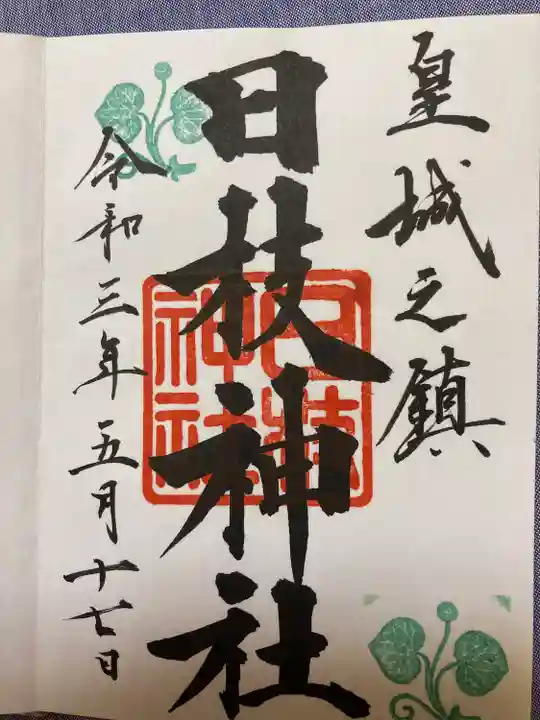 皇城之鎮
日枝神社
日枝
神社
令和三年五月十七日